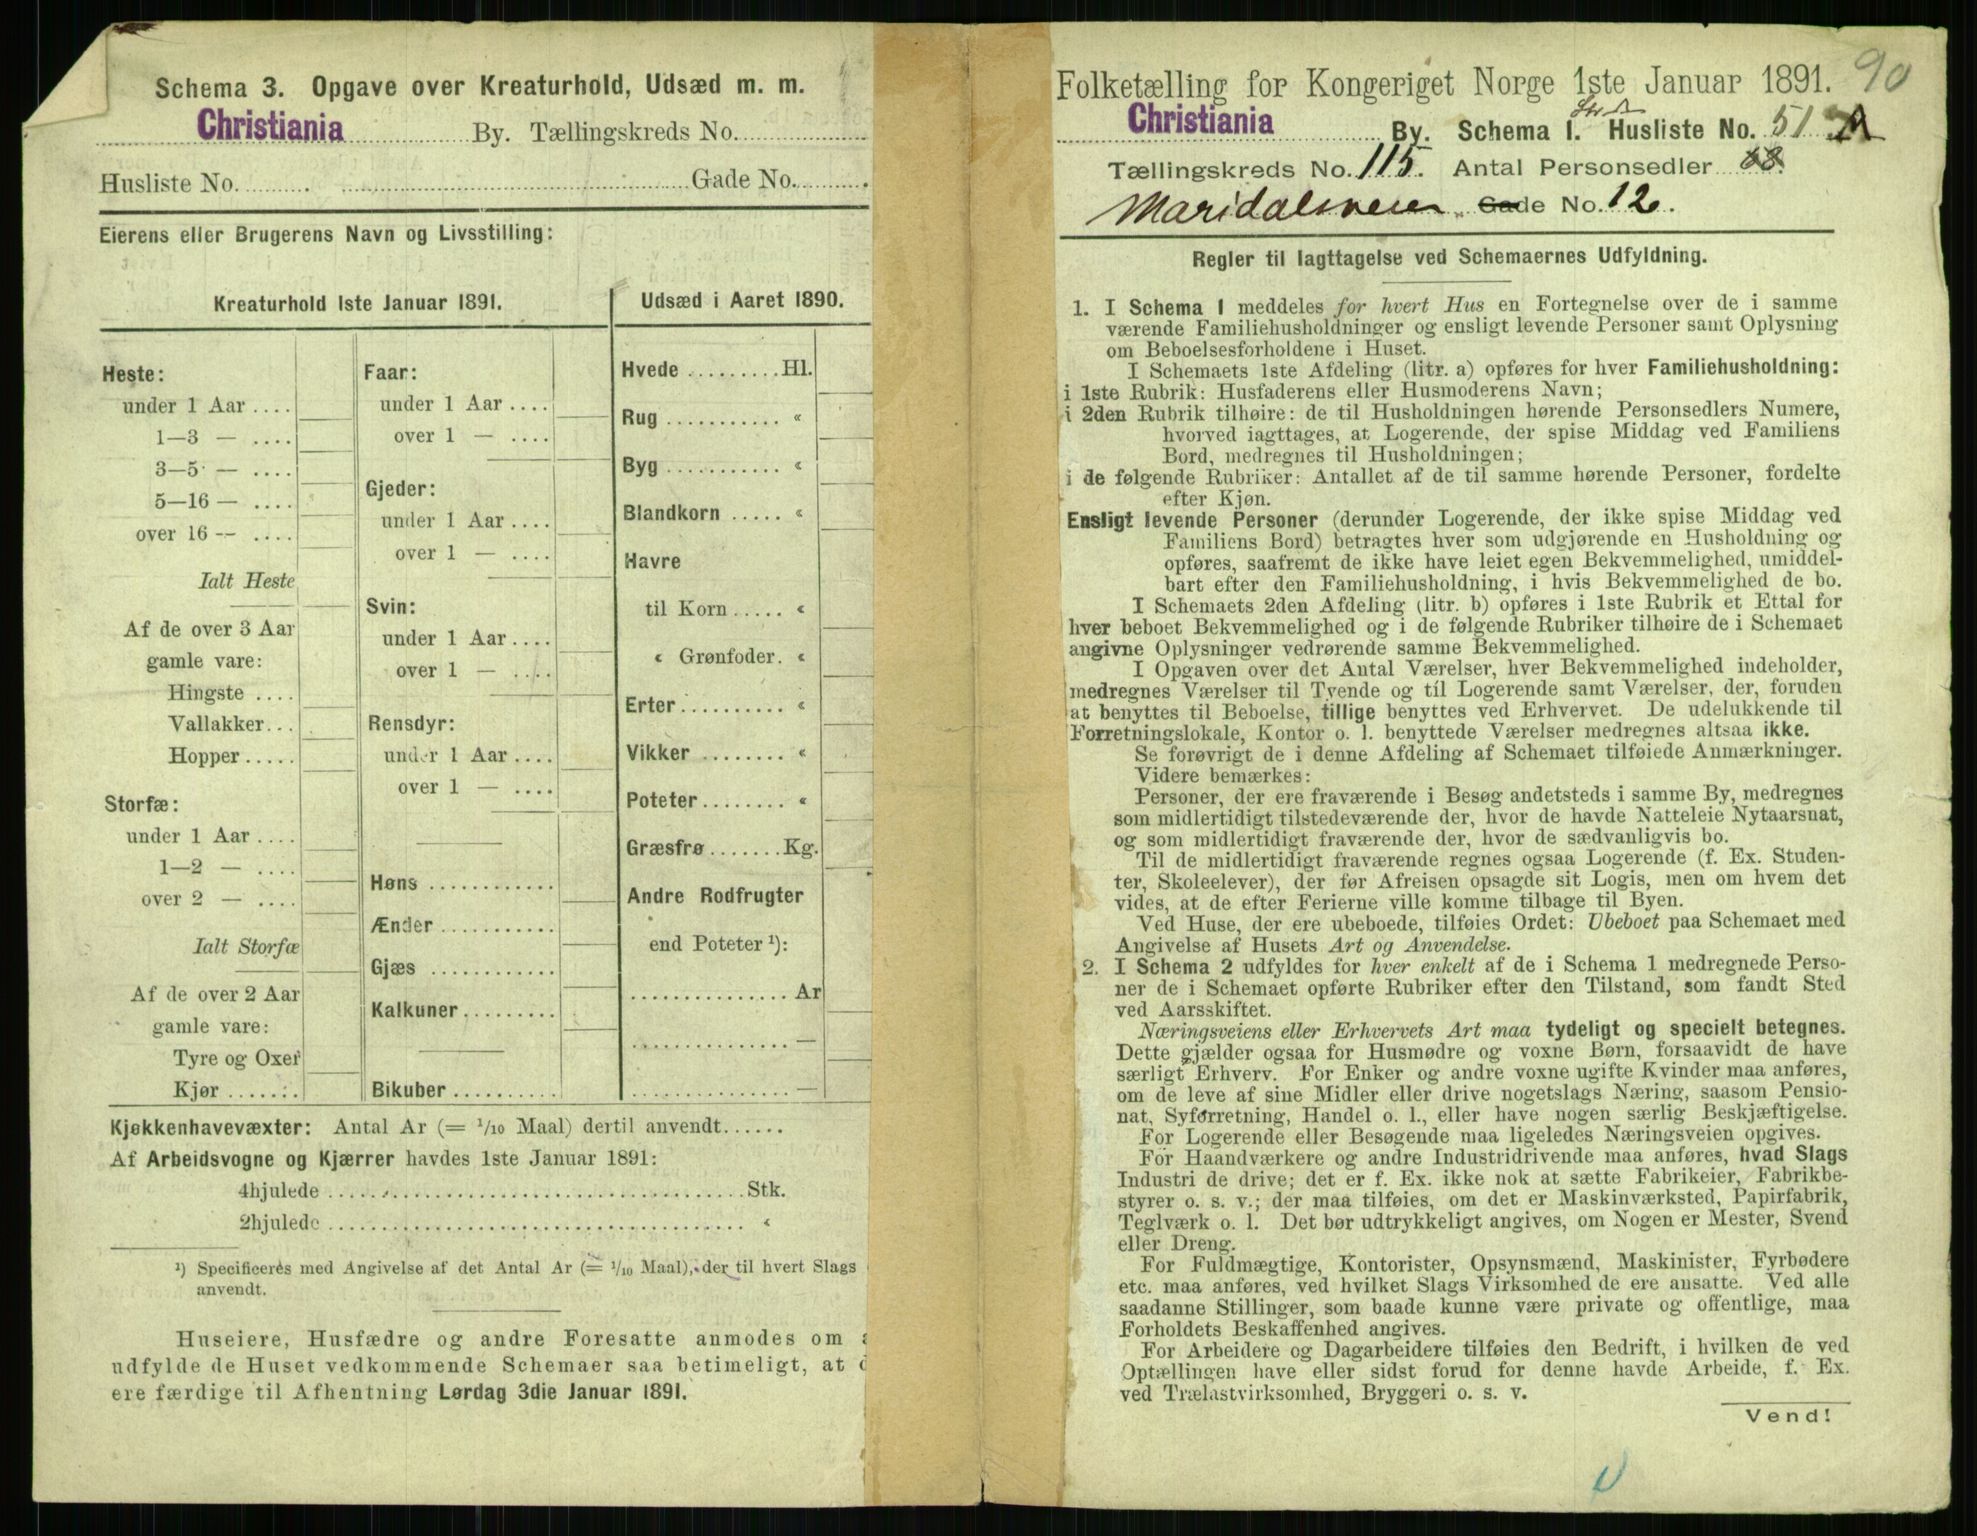 Schema 3. Opgave over Kreaturhold, Udsæd m. m.
Christiania By. Tællingskreds No.
Husliste No. Gade No.
Eierens eller Brugerens Navn og Livsstilling:
Kreaturhold 1ste Januar 1891.
Heste:
under 1 Aar
1—3 —
3—5 —
5—16 —
over 16 —
Ialt Heste
Af de over 3 Aar
gamle vare:
Hingste
Vallakker
Hopper
Storfæ:
under 1 Aar
1—2 —
over 2 —
Ialt Storfæ
Af de over 2 Aar
gamle vare:
Tyre og Oxer
Kjør
Faar:
under 1 Aar
over 1 —
Gjeder:
under 1 Aar
over 1 —
Svin:
under 1 Aar
over 1 —
Rensdyr:
under 1 Aar
over 1 —
Høns
Ænder
Gjæs
Kalkuner
Bikuber
Udsæd i Aaret 1890.
Hvede Hl.
Rug «
Byg «
Blandkorn «
Havre
til Korn «
« Grønfoder. «
Erter «
Vikker «
Poteter «
Græsfrø Kg.
Andre Rodfrugter
end Poteter ¹):
Ar
—
—
Kjøkkenhavevæxter: Antal Ar (= 1/10 Maal) dertil anvendt
Af Arbeidsvogne og Kjærrer havdes 1ste Januar 1891:
4hjulede Stk.
2hjulede «
¹) Specificeres med Angivelse af det Antal Ar (= 1/10 Maal), der til hvert Slags
anvendt.
Huseiere, Husfædre og andre Foresatte anmodes om a
udfylde de Huset vedkommende Schemaer saa betimeligt, at d
ere færdige til Afhentning Lørdag 3die Januar 1891.
90
Folketælling for Kongeriget Norge 1ste Januar 1891.
Christiania By. Schema 1. Husliste No. 51
Tællingskreds No. 115. Antal Personsedler 68.
Maridalsveien Gade No. 12.
Regler til Iagttagelse ved Schemaernes Udfyldning.
1. I Schema 1 meddeles for hvert Hus en Fortegnelse over de i samme
værende Familiehusholdninger og ensligt levende Personer samt Oplysning
om Beboelsesforholdene i Huset.
I Schemaets 1ste Afdeling (litr. a) opføres for hver Familiehusholdning:
i 1ste Rubrik: Husfaderens eller Husmoderens Navn;
i 2den Rubrik tilhøire: de til Husholdningen hørende Personsedlers Numere,
hvorved iagttages, at Logerende, der spise Middag ved Familiens
Bord, medregnes til Husholdningen;
i de følgende Rubriker: Antallet af de til samme hørende Personer, fordelte
efter Kjøn.
Ensligt levende Personer (derunder Logerende, der ikke spise Middag ved
Familiens Bord) betragtes hver som udgjørende en Husholdning og
opføres, saafremt de ikke have leiet egen Bekvemmelighed, umiddel-
bart efter den Familiehusholdning, i hvis Bekvemmelighed de bo.
I Schemaets 2den Afdeling (litr. b) opføres i 1ste Rubrik et Ettal for
hver beboet Bekvemmelighed og i de følgende Rubriker tilhøire de i Schemaet
angivne Oplysninger vedrørende samme Bekvemmelighed.
I Opgaven over det Antal Værelser, hver Bekvemmelighed indeholder,
medregnes Værelser til Tyende og til Logerende samt Værelser, der, foruden
at benyttes til Beboelse, tillige benyttes ved Erhvervet. De udelukkende til
Forretningslokale, Kontor o. l. benyttede Værelser medregnes altsaa ikke.
Se forøvrigt de i denne Afdeling af Schemaet tilføiede Anmærkninger.
Videre bemærkes:
Personer, der ere fraværende i Besøg andetsteds i samme By, medregnes
som midlertidigt tilstedeværende der, hvor de havde Natteleie Nytaarsnat,
og som midlertidigt fraværende der, hvor de sædvanligvis bo.
Til de midlertidigt fraværende regnes ogsaa Logerende (f. Ex. Studen-
ter, Skoleelever), der før Afreisen opsagde sit Logis, men om hvem det
vides, at de efter Ferierne ville komme tilbage til Byen.
Ved Huse, der ere ubeboede, tilføies Ordet: Ubeboet paa Schemaet med
Angivelse af Husets Art og Anvendelse.
2. I Schema 2 udfyldes for hver enkelt af de i Schema 1 medregnede Perso-
ner de i Schemaet opførte Rubriker efter den Tilstand, som fandt Sted
ved Aarsskiftet.
Næringsveiens eller Erhvervets Art maa tydeligt og specielt betegnes.
Dette gjælder ogsaa for Husmødre og voxne Børn, forsaavidt de have
særligt Erhverv. For Enker og andre voxne ugifte Kvinder maa anføres,
om de leve af sine Midler eller drive nogetslags Næring, saasom Pensio-
nat, Syforretning, Handel o. l., eller have nogen særlig Beskjæftigelse.
For Logerende eller Besøgende maa ligeledes Næringsveien opgives.
For Haandværkere og andre Industridrivende maa anføres, hvad Slags
Industri de drive; det er f. Ex. ikke nok at sætte Fabrikeier, Fabrikbe-
styrer o. s. v.; der maa tilføies, om det er Maskinværksted, Papirfabrik,
Teglværk o. l. Det bør udtrykkeligt angives, om Nogen er Mester, Svend
eller Dreng.
For Fuldmægtige, Kontorister, Opsynsmænd, Maskinister, Fyrbødere
etc. maa anføres, ved hvilket Slags Virksomhed de ere ansatte. Ved alle
saadanne Stillinger, som baade kunne være private og offentlige, maa
Forholdets Beskaffenhed angives.
For Arbeidere og Dagarbeidere tilføies den Bedrift, i hvilken de ved
Optællingen have eller sidst forud for denne havde Arbeide, f. Ex.
ved Trælastvirksomhed, Bryggeri o. s. v.
Vend!